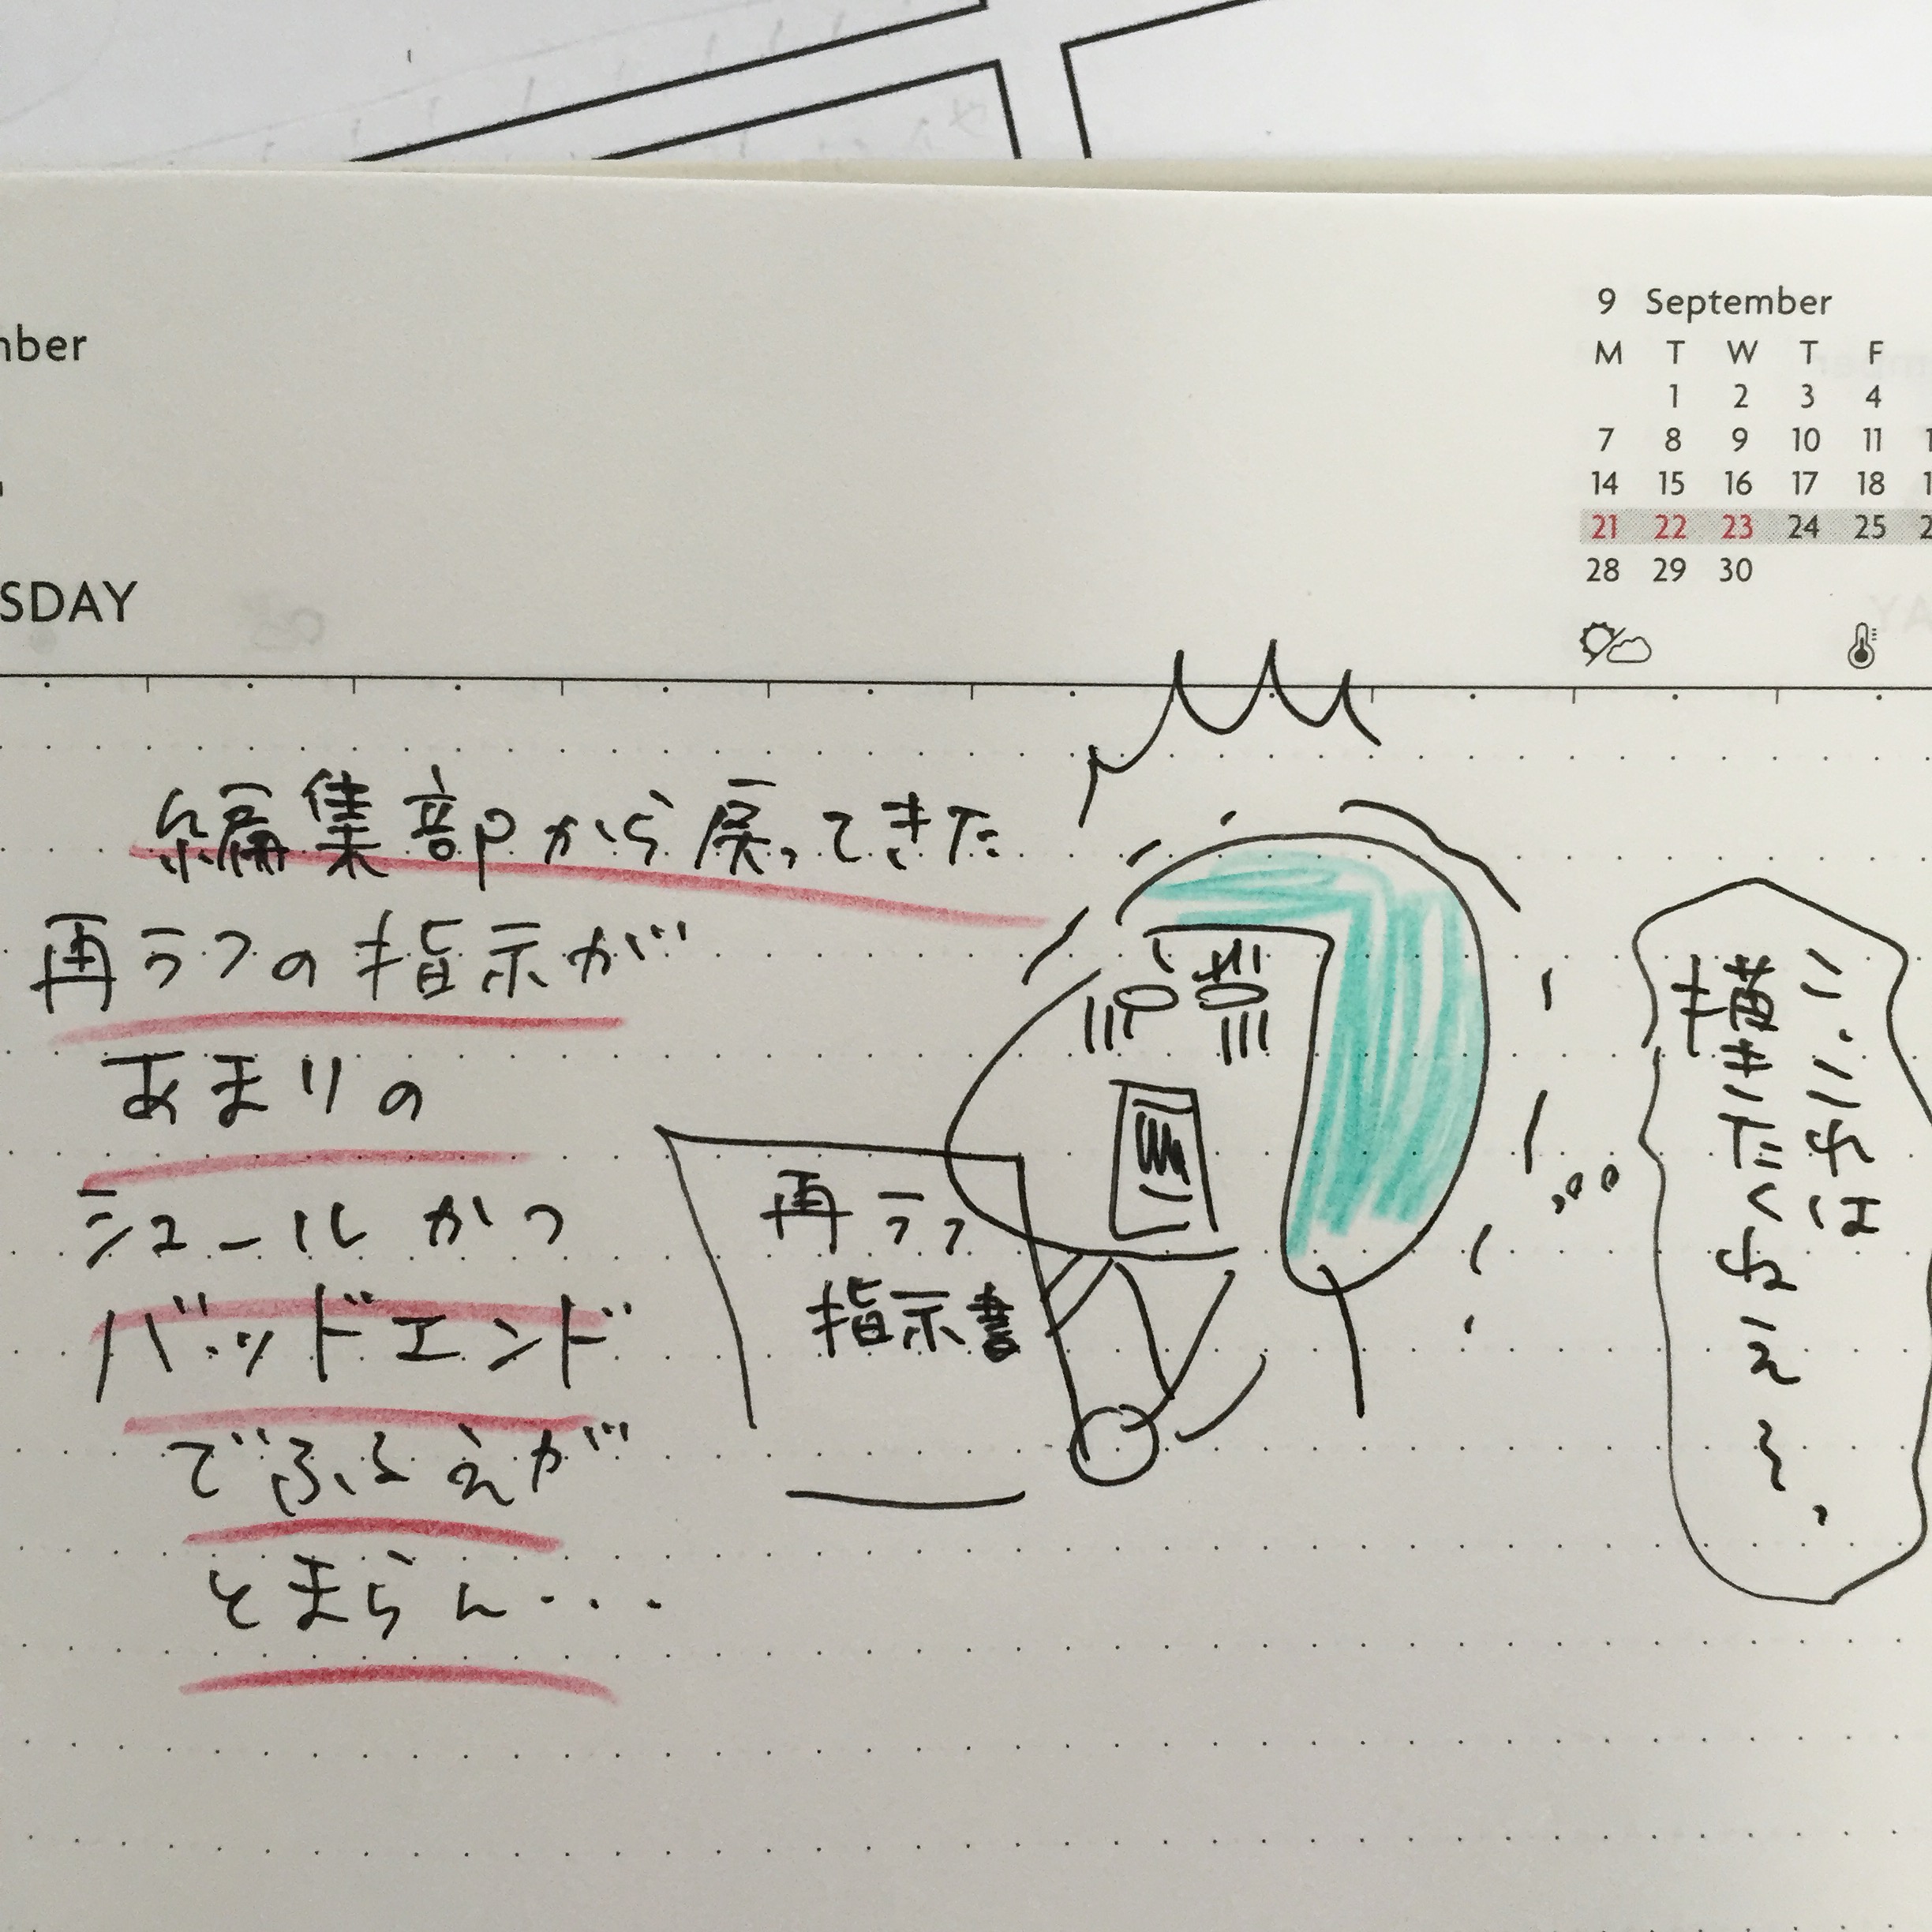 9 September
M T W T F
1 2 3 4
7 8 9 10 11
14 15 16 17 18
21 22 23 24 25
28 29 30
編集部から戻ってきた
再ラフの指示が
あまりの
シュールかつ
バッドエンド
でふるえが
とまらん...
再ラフ
指示書
こ、これは
描きたくねえ〜、